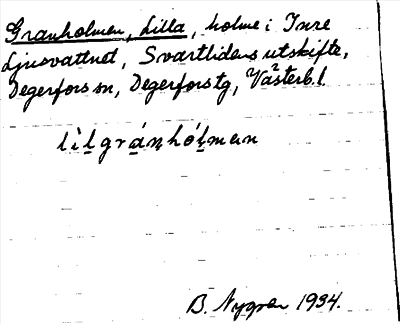 Granholmen, Lilla, holme i Inre
Ljusvattnet, Svartlidens utskifte,
Degerfors sn, Degerforstg, Västerb. l.
lìlgránhólmen
B. Nygren 1934.